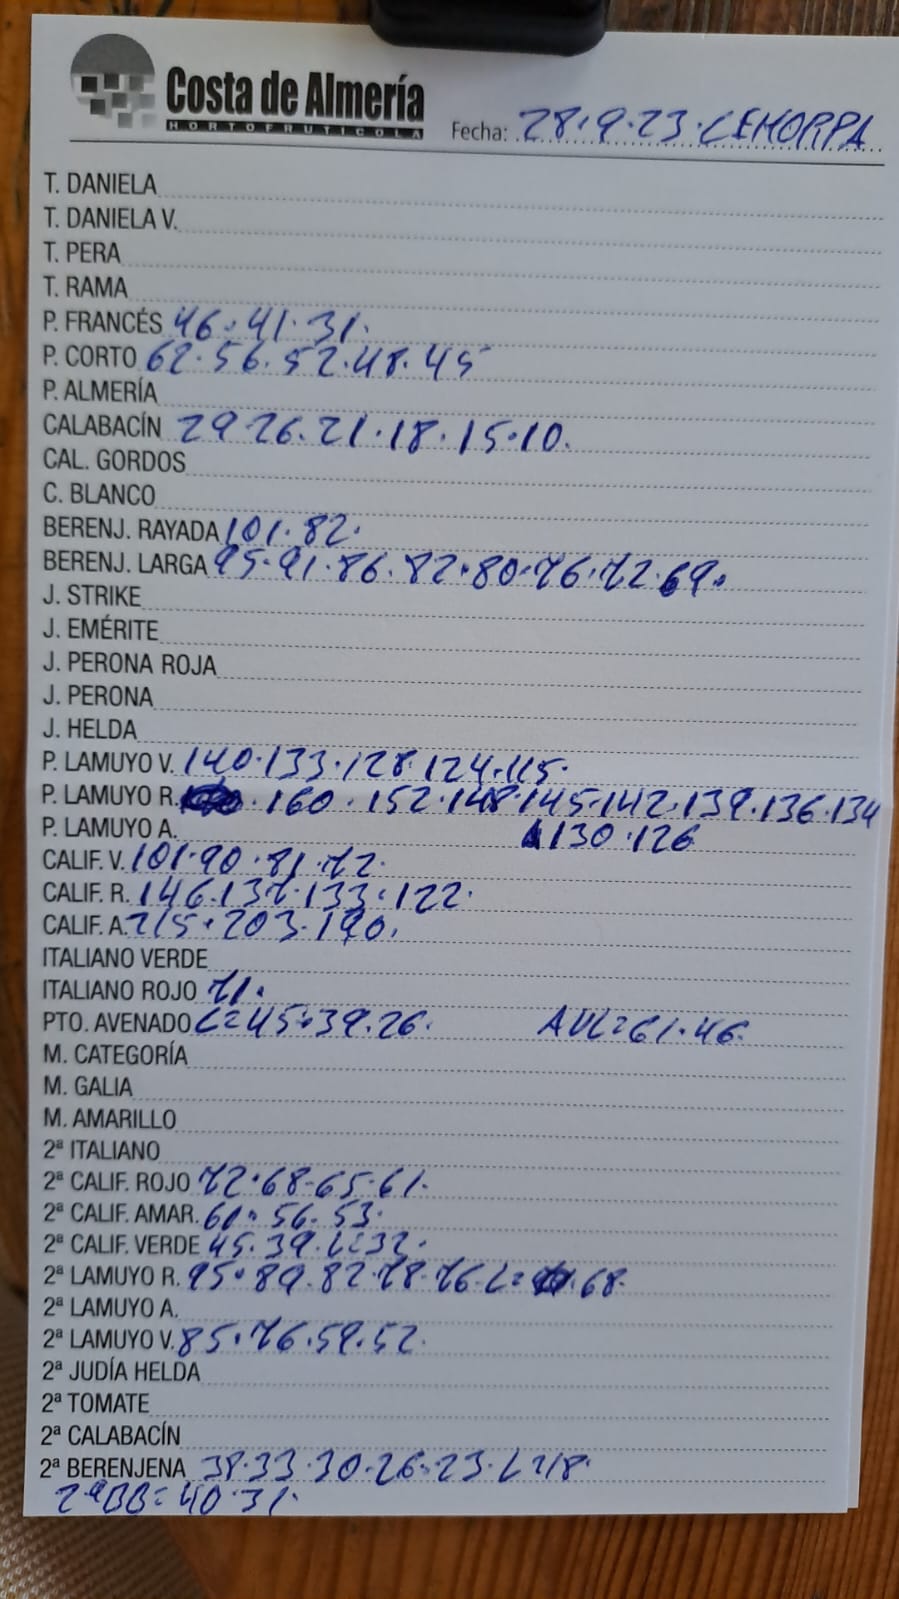 Costa de Almería
HORTOFRUTICOLA
Fecha: 28.9.23. CEHORPA
T. DANIELA
T. DANIELA V.
T. PERA
T. RAMA
P. FRANCÉS 46. 41. 31.
P. CORTO 62. 56. 52. 48. 45
P. ALMERÍA
CALABACÍN 29 26. 21. 18. 15. 10.
CAL. GORDOS
C. BLANCO
BERENJ. RAYADA 101. 82.
BERENJ. LARGA 95. 91. 86. 82. 80. 76. 72. 69.
J. STRIKE
J. EMÉRITE
J. PERONA ROJA
J. PERONA
J. HELDA
P. LAMUYO V. 140. 133. 128. 124. 115.
P. LAMUYO R. 160. 152. 148. 145. 142. 139. 136. 134
P. LAMUYO A. 130. 126
CALIF. V. 101. 90. 81. 72.
CALIF. R. 146. 137. 133. 122.
CALIF. A. 215. 203. 190.
ITALIANO VERDE
ITALIANO ROJO 71.
PTO. AVENADO L=45. 39. 26. AVL=61. 46.
M. CATEGORÍA
M. GALIA
M. AMARILLO
2ª ITALIANO
2ª CALIF. ROJO 72. 68. 65. 61.
2ª CALIF. AMAR. 60. 56. 53.
2ª CALIF. VERDE 45. 39. L=32.
2ª LAMUYO R. 95. 89. 82. 78. 76. L= 68.
2ª LAMUYO A.
2ª LAMUYO V. 85. 76. 59. 52.
2ª JUDÍA HELDA
2ª TOMATE
2ª CALABACÍN
2ª BERENJENA 38. 33. 30. 26. 23. L=18.
2ªBB=40. 31.